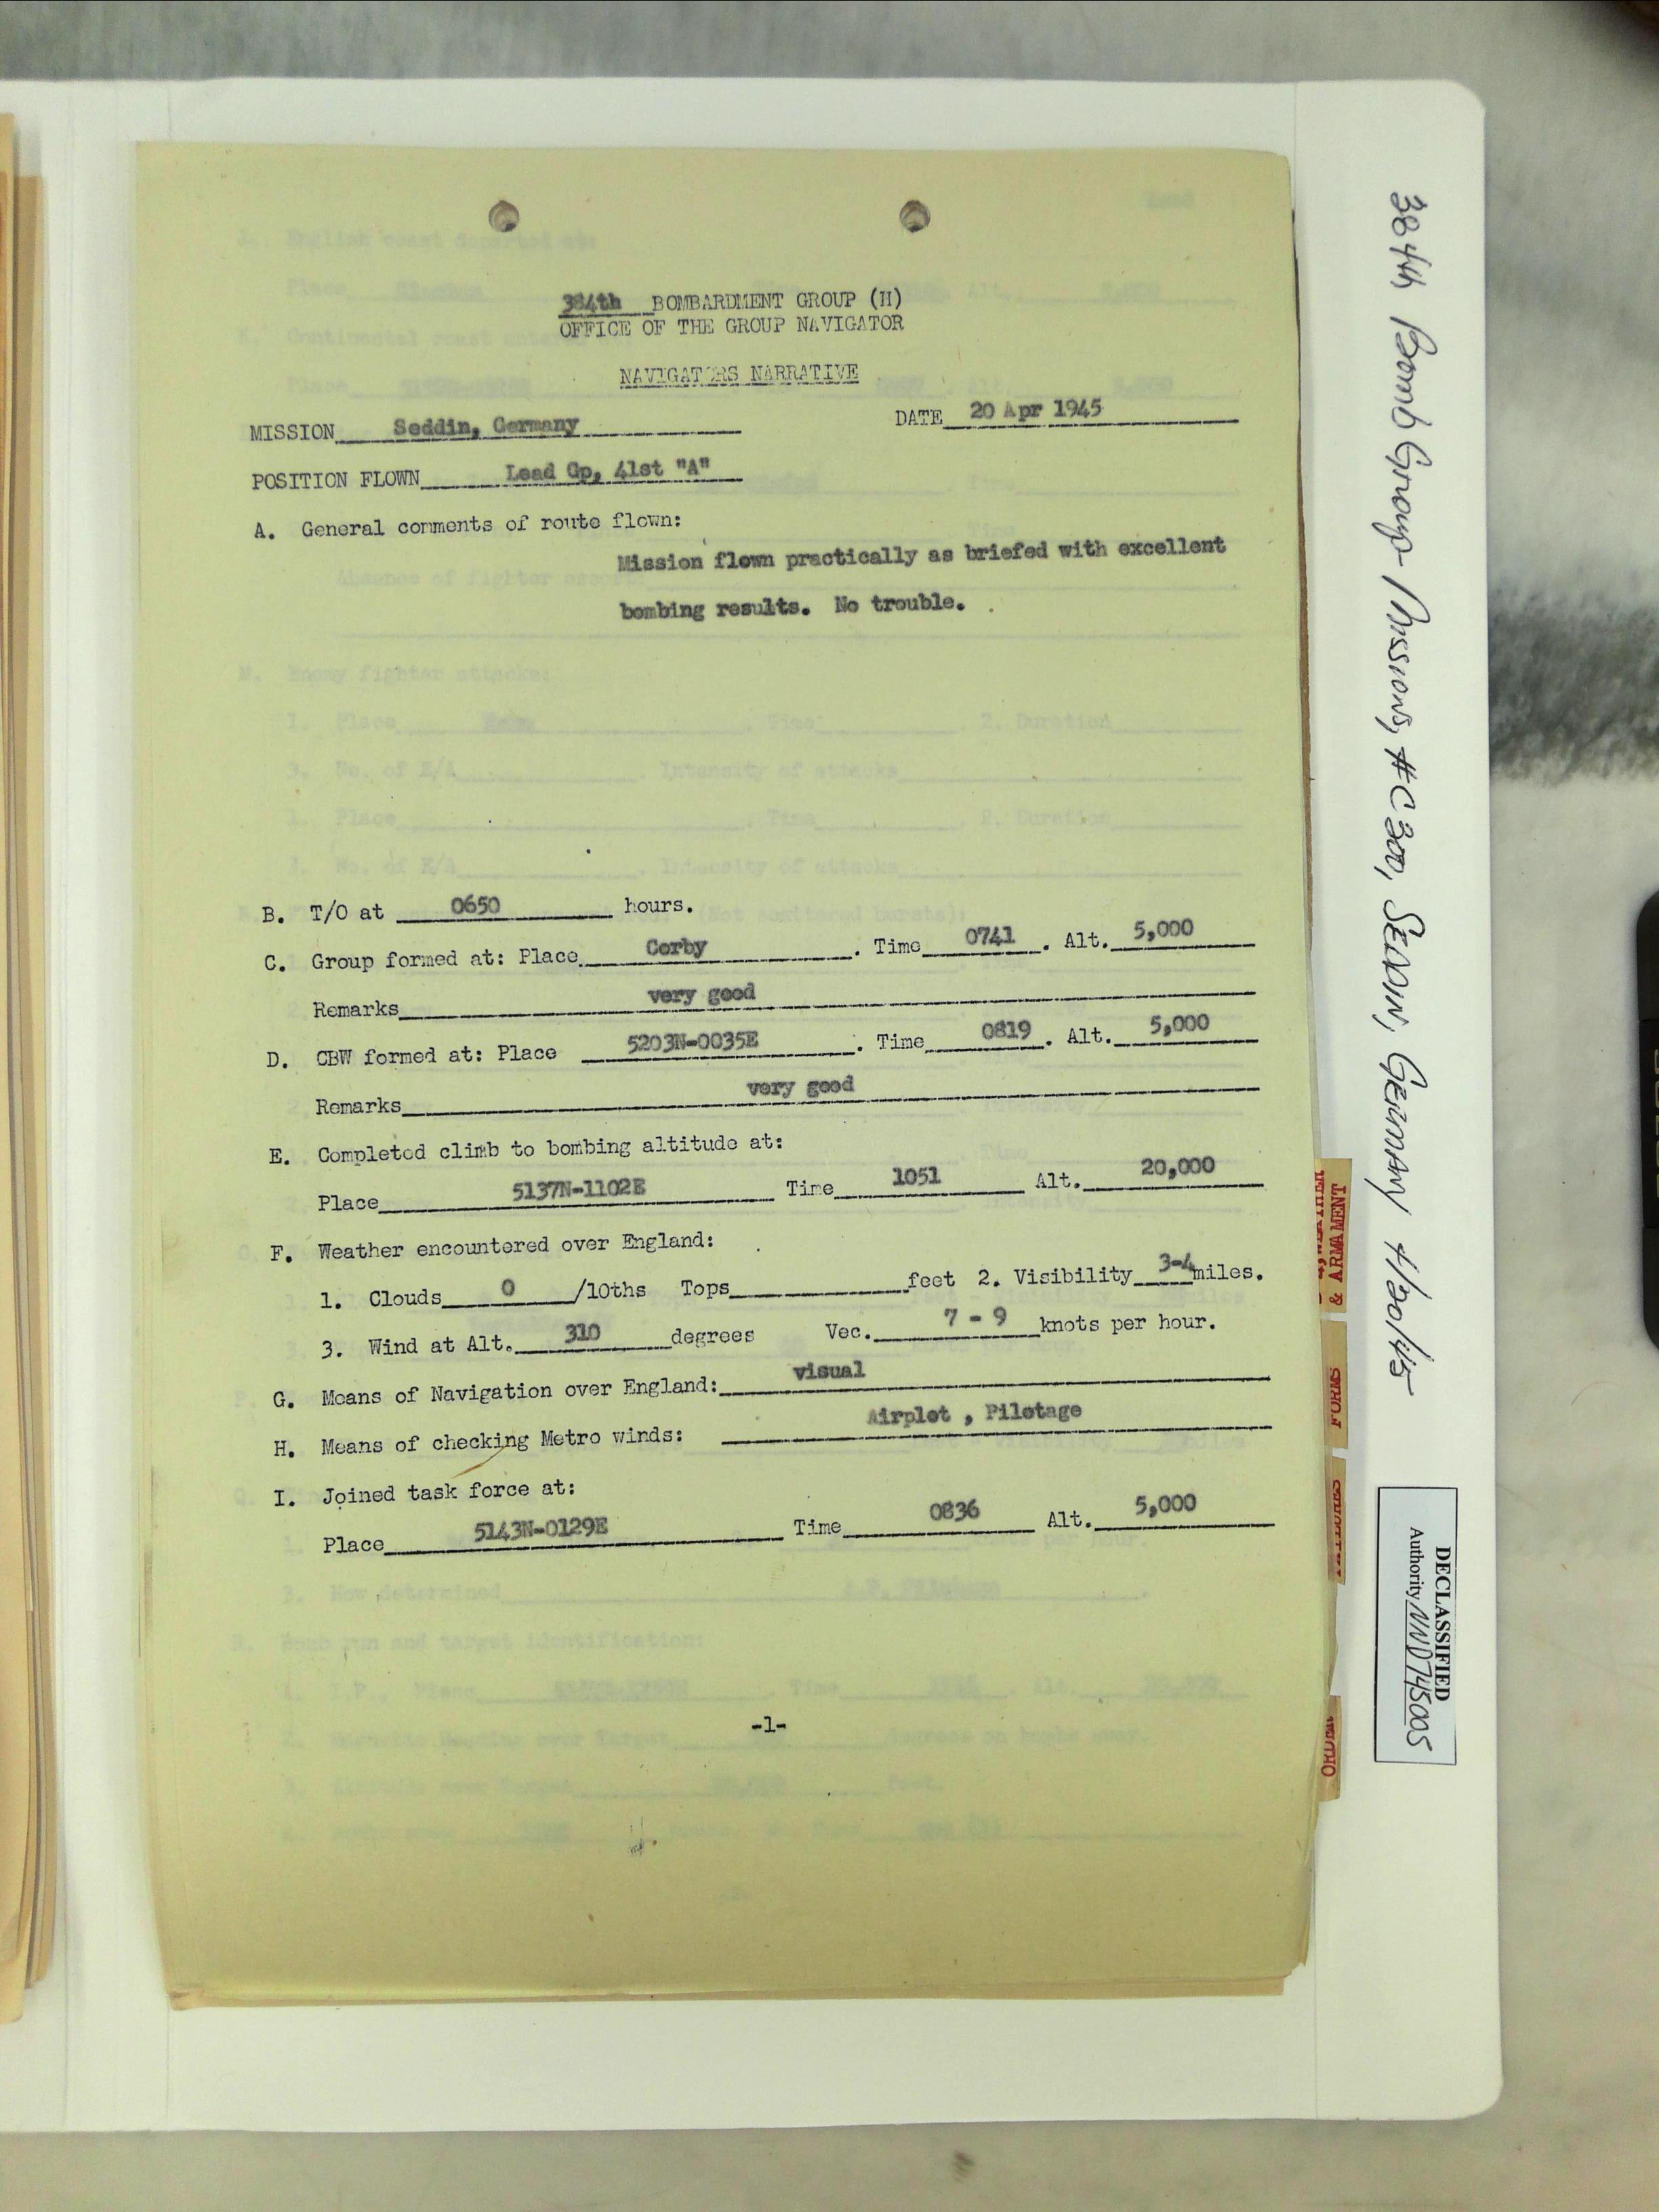 384th BOMBARDMENT GROUP (H)
OFFICE OF THE GROUP NAVIGATOR
NAVIGATORS NARRATIVE
MISSION Seddin, Germany DATE 20 Apr 1945
POSITION FLOWN Lead Gp, 41st "A"
A. General comments of route flown:
Mission flown practically as briefed with excellent
bombing results. No trouble.
B. T/O at 0650 hours.
C. Group formed at: Place Corby. Time 0741. Alt. 5,000
Remarks very good
D. CBW formed at: Place 5203N-0035E. Time 0819. Alt. 5,000
Remarks very good
E. Completed climb to bombing altitude at:
Place 5137N-1102E Time 1051 Alt. 20,000
F. Weather encountered over England:
1. Clouds 0 /10ths Tops feet 2. Visibility 3-4 miles.
3. Wind at Alt. 310 degrees Vec. 7 - 9 knots per hour.
G. Means of Navigation over England: visual
H. Means of checking Metro winds: Airplot , Pilotage
I. Joined task force at:
Place 5143N-0129E Time 0836 Alt. 5,000
-1-
384th Bomb Group- Missions, #C300, SEDDIN, GERMANY 4/20/45
& ARMAMENT
FORMS
ORDER
DECLASSIFIED
Authority NND745005